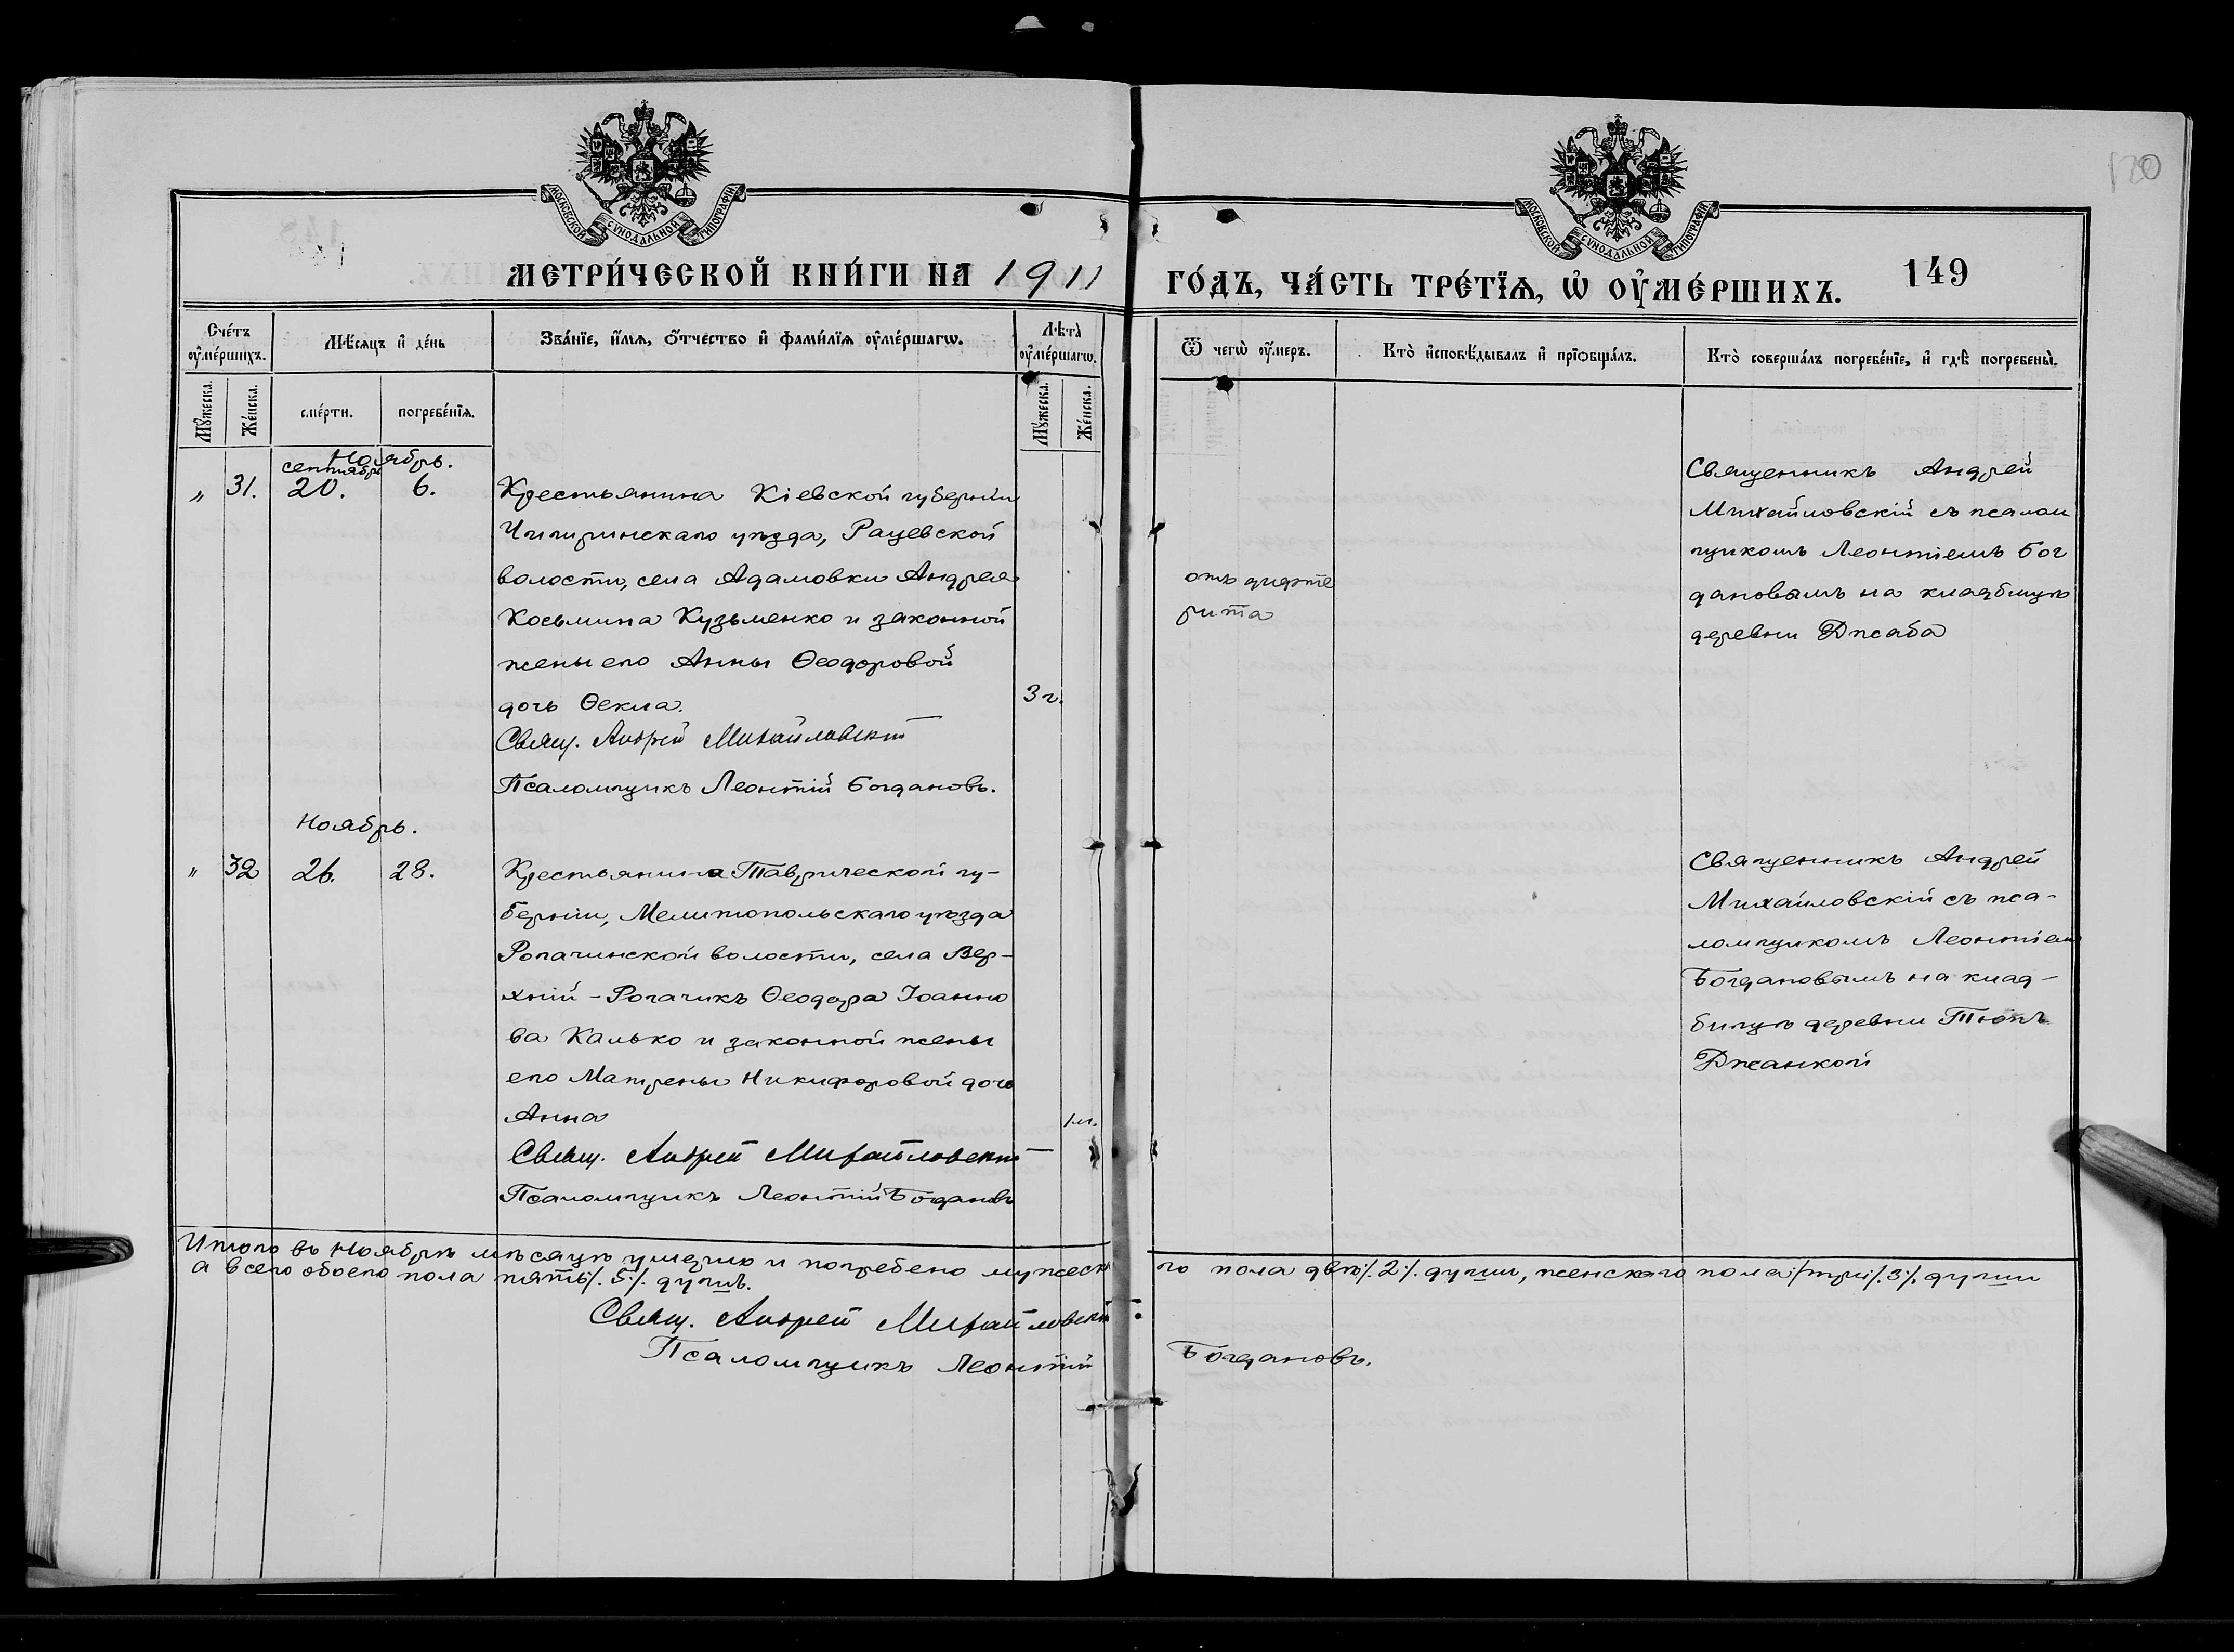 МОСКОВСКОЙ СѴНОДАЛЬНОЙ ТИПОГРАФІИ
МОСКОВСКОЙ СѴНОДАЛЬНОЙ ТИПОГРАФІИ
МЕТРИ́ЧЕСКОЙ КНИ́ГИ НА 1911
ГО́ДЪ, ЧА́СТЬ ТРЕ́ТЇѦ, Ѡ҆ ОУ҆МЕ́РШИХЪ.
149
Сче́тъ оу҆ме́ршихъ.
Мѣ́сяцъ и҆ де́нь
Зва́нїе, и҆́мя, ѻ҆́тчество и҆ фами́лїя оу҆ме́ршагѡ.
Лѣ́та оу҆ме́ршагѡ.
Ѿ чегѡ̀ оу҆́меръ.
Кто̀ и҆сповѣ́дывалъ и҆ прїѻбща́лъ.
Кто̀ соверша́лъ погребе́нїе, и҆ гдѣ̀ погребены̀.
Мꙋ́жеска.
Же́нска.
сме́рти.
погребе́нїѧ.
Мꙋ́жеска.
Же́нска.
Ноябрь.
сентябрь
„ 31. 20. 6.
Крестьянина Кіевской губерніи
Чигиринскаго уѣзда, Рацевской
волости, села Адамовки Андрея
Косьмина Кузьменко и законной
жены его Анны Ѳеодоровой
дочь Ѳекла.
3 г.
Свящ. Андрей Михайловскій
Псаломщикъ Леонтій Богдановъ.
отъ дифте
рита
Священникъ Андрей
Михайловскій съ псалом
щикомъ Леонтіемъ Бог
дановымъ на кладбищѣ
деревни Джаба
Ноябрь.
„ 32 26. 28.
Крестьянина Таврической гу-
берніи, Мелитопольскаго уѣзда
Рогачинской волости, села Вер-
хній - Рогачикъ Ѳеодора Іоанно
ва Калько и законной жены
его Матрены Никифоровой дочь
Анна
1 м.
Свящ. Андрей Михайловскій
Псаломщикъ Леонтій Богдановъ
Священникъ Андрей
Михайловскій съ пса-
ломщикомъ Леонтіемъ
Богдановымъ на клад-
бищѣ деревни Тюпъ
Джанкой
Итого въ Ноябрѣ мѣсяцѣ умерло и погребено мужеск
го пола двѣ /. 2 /. души, женскаго пола /. три /. 3 /. души
а всего обоего пола пять /. 5 /. душъ.
Свящ. Андрей Михайловскій
Псаломщикъ Леонтій
Богдановъ.